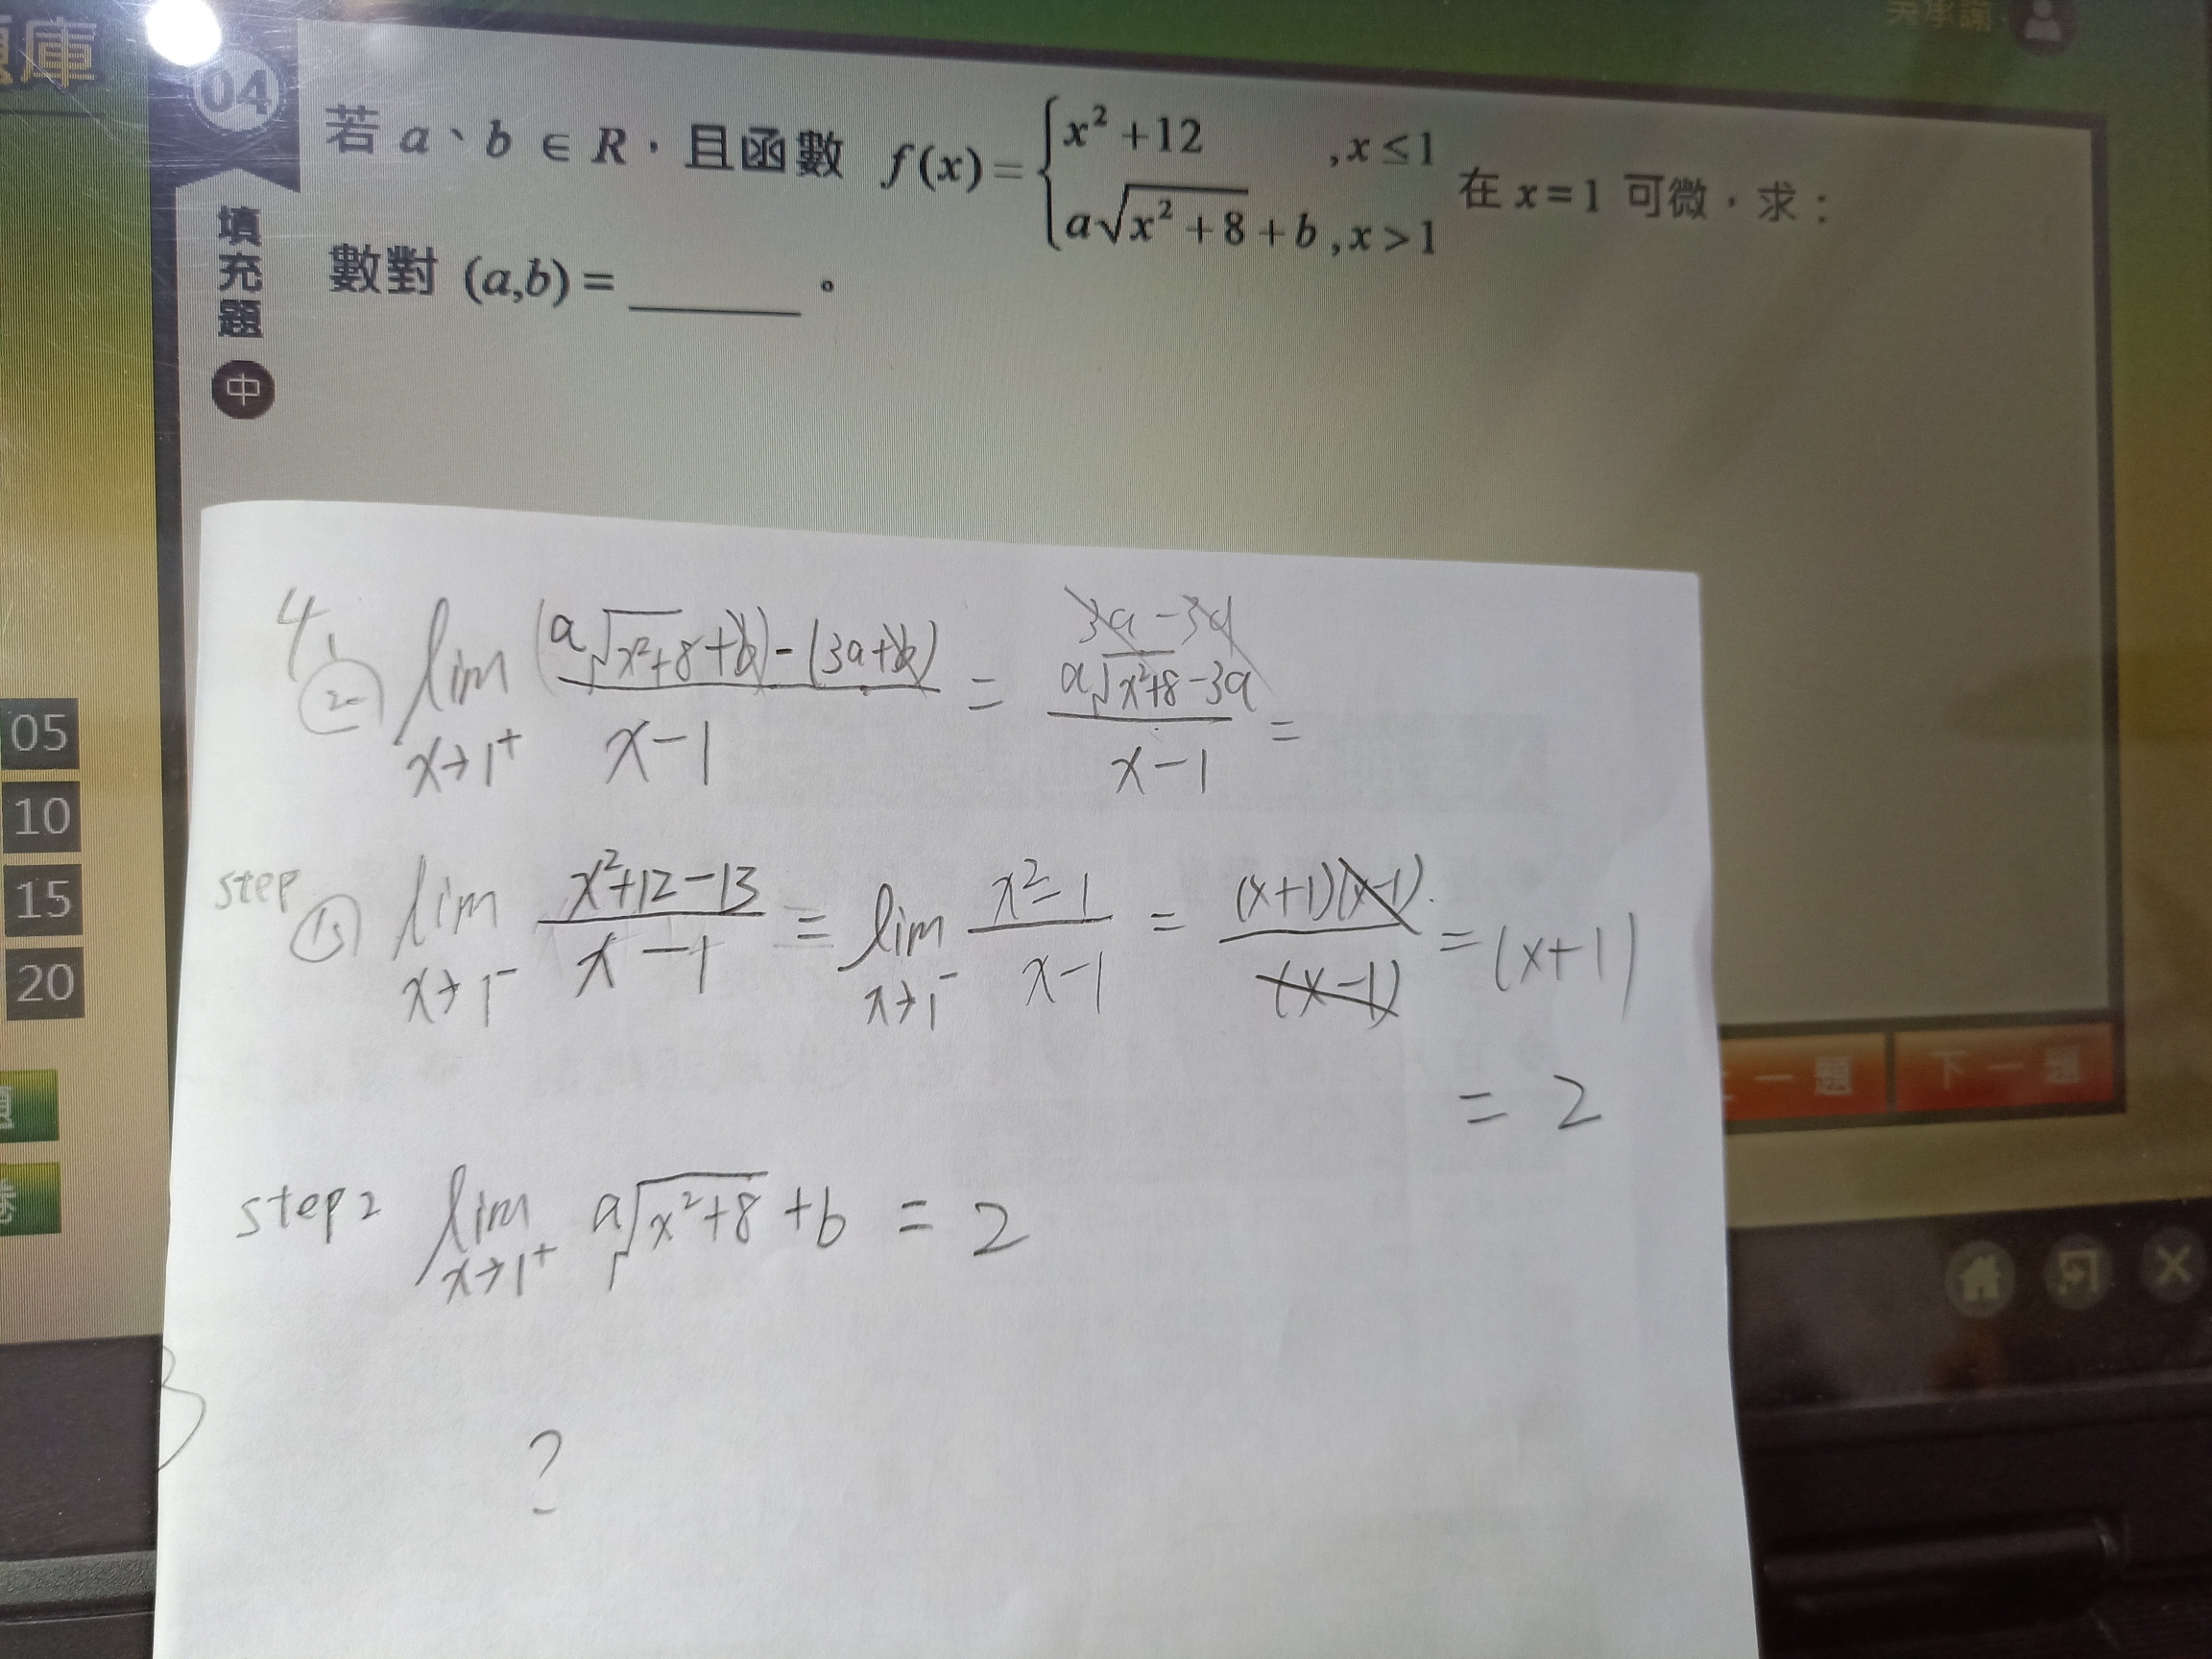 庫
吳承諭
04
若 a、b ∈ R，且函數 f(x) = { x² + 12 , x ≤ 1
a√(x² + 8) + b , x > 1 在 x = 1 可微，求：
數對 (a,b) = ______ 。
填充題
中
05
10
15
20
一題
下一題
4.
② lim x→1⁺ ((a√(x²+8)+b) - (3a+b))/(x-1) = (a√(x²+8) - 3a)/(x-1) =
3a-3a
step ① lim x→1⁻ (x²+12-13)/(x-1) = lim x→1⁻ (x²-1)/(x-1) = ((x+1)(x-1))/(x-1) = (x+1)
= 2
step2 lim x→1⁺ a√(x²+8) + b = 2
?